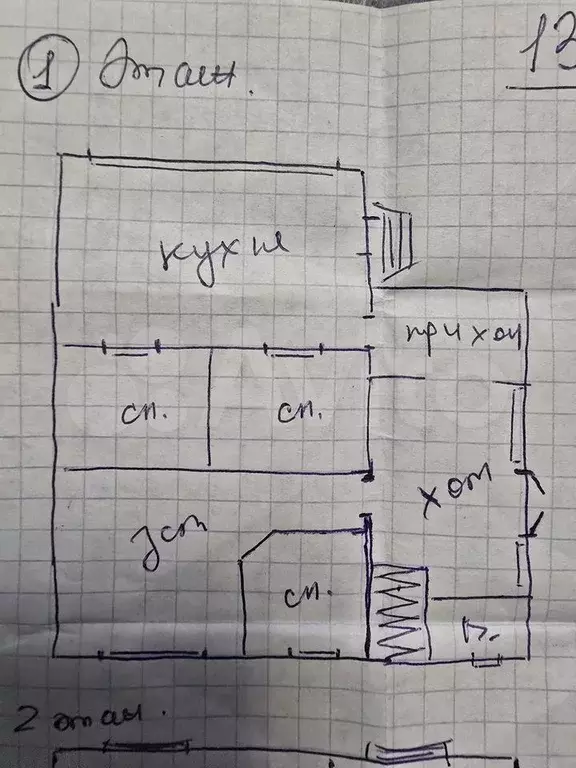 1 Этаж.
13
кухня
прихож
сп.
сп.
хол
зал
сп.
2 этаж.